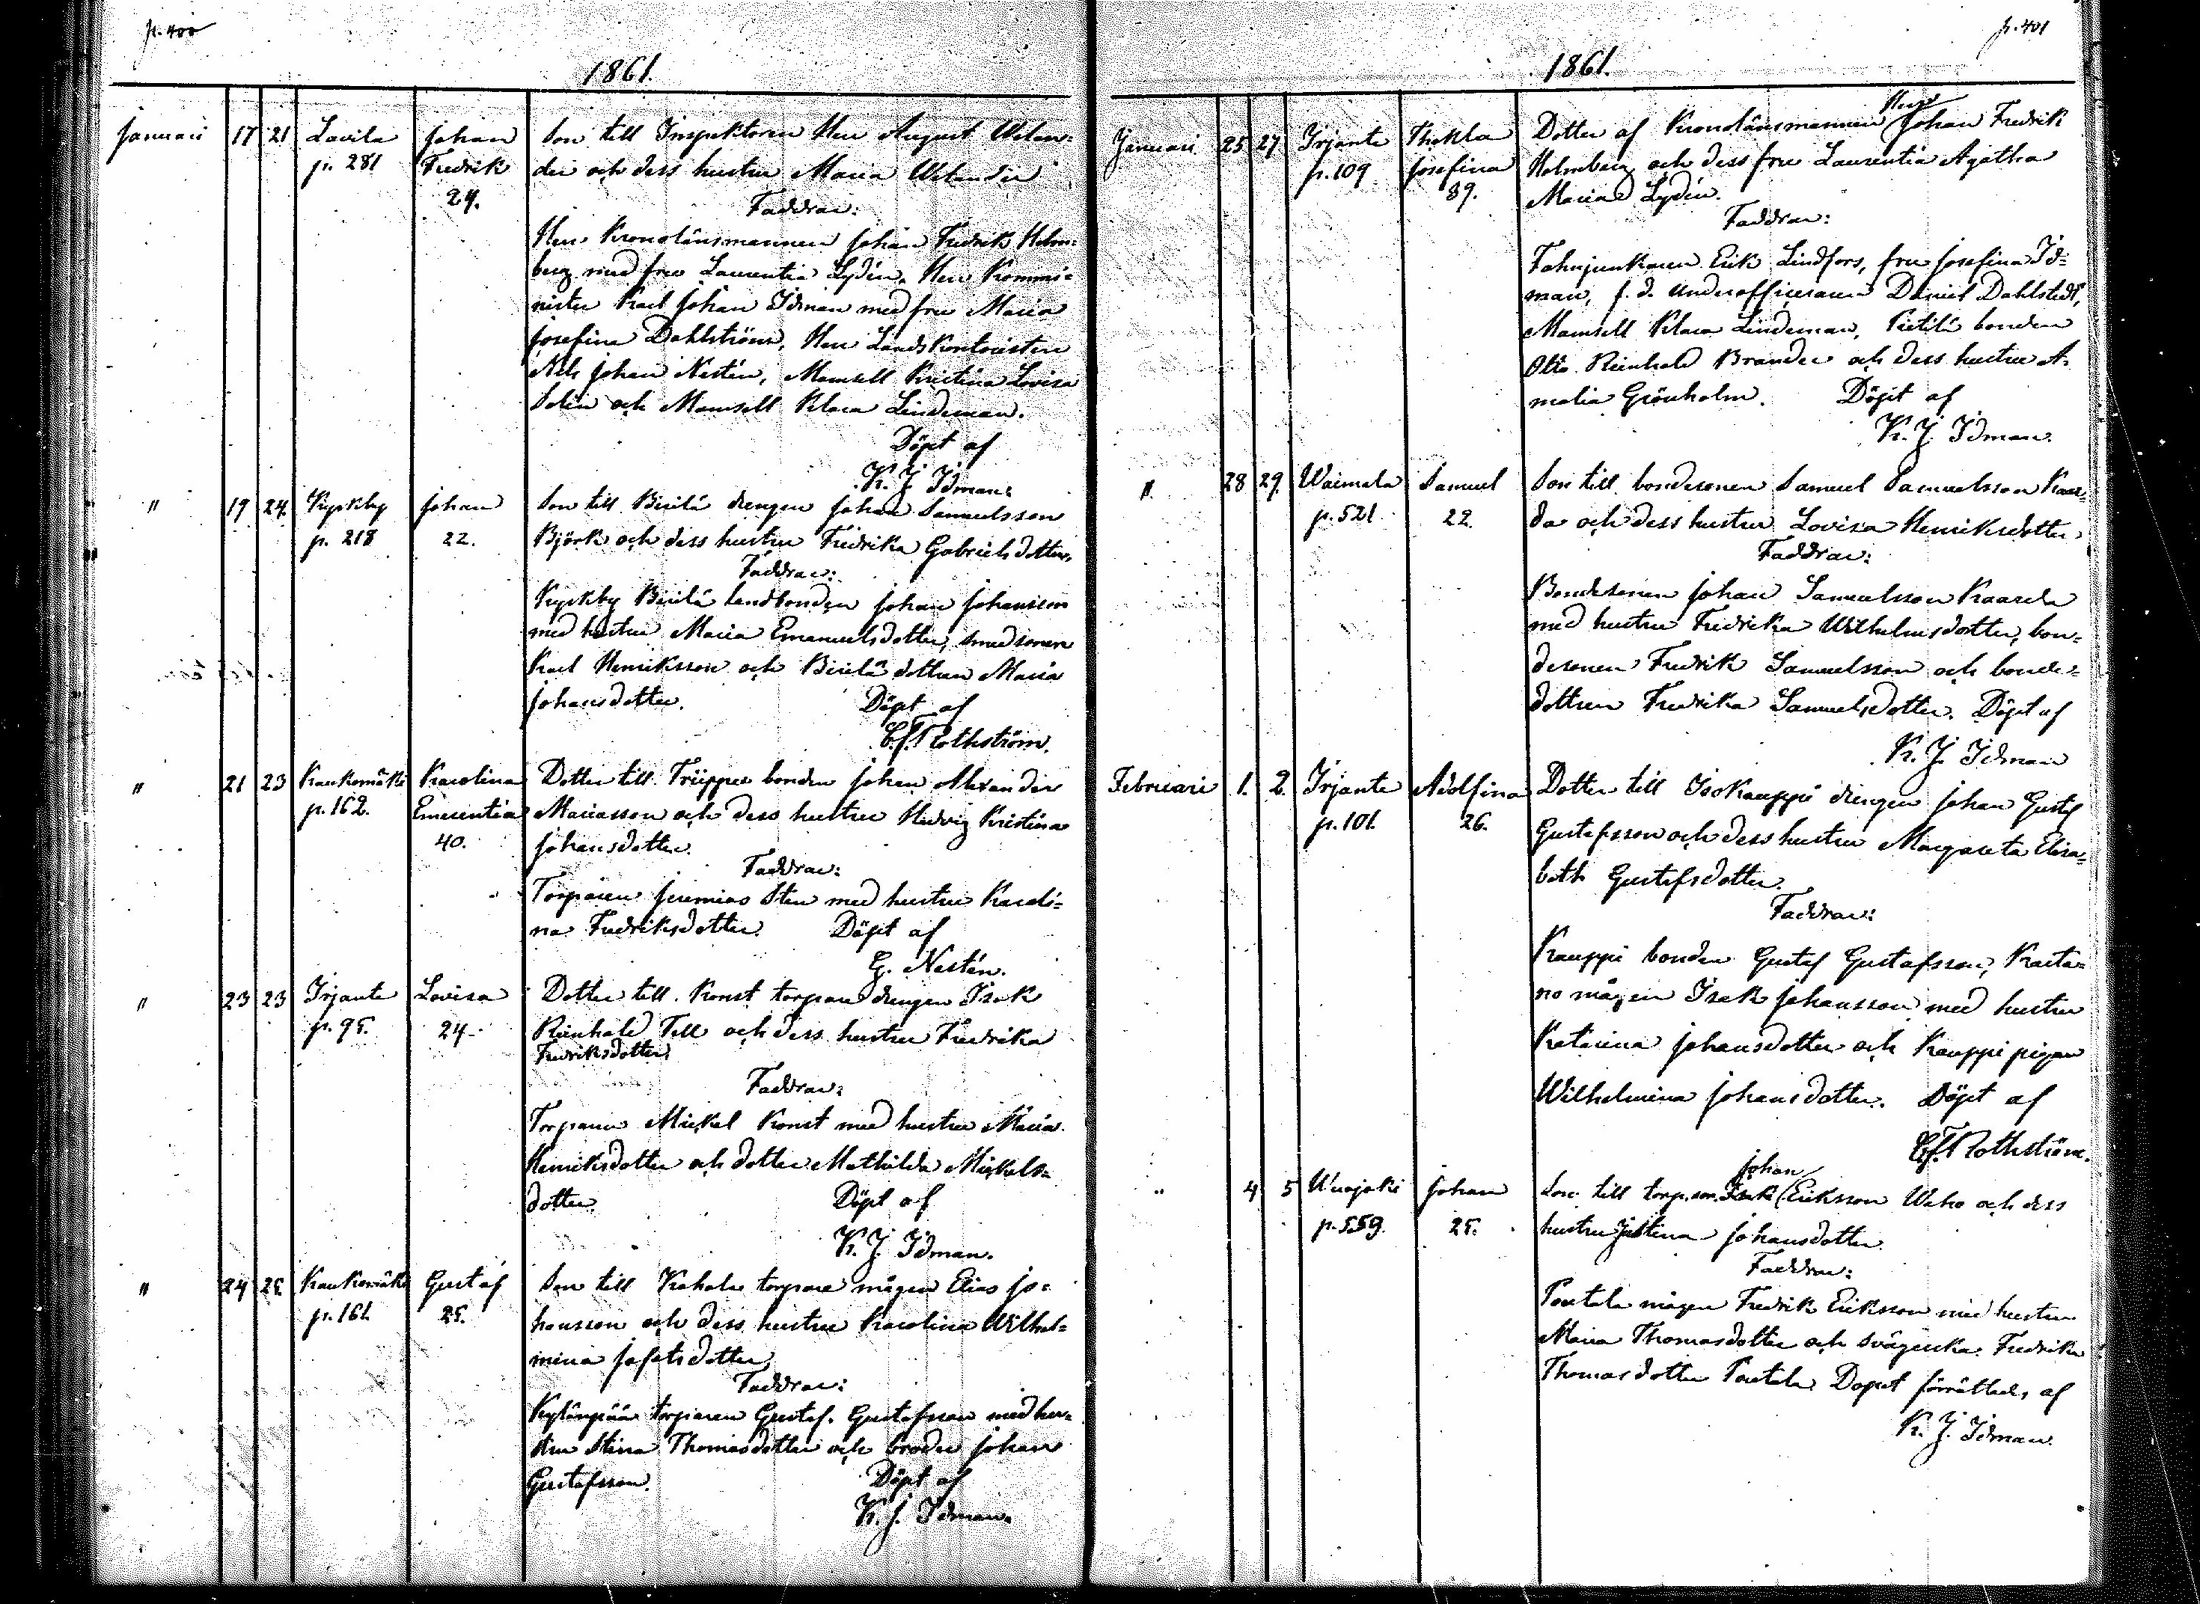 p. 400
1861.
Januari 17 21 Lavila Johan Son till Inspektoren Herr August Welan-
p. 281 Fredrik der och dess hustru Maria Welander
24. Faddrar:
Herr Kronolänsmannen Johan Fredrik Holm-
berg med fru Laurentia Lydén, Herr Kommi-
nister Karl Johan Idman med fru Maria
Josefina Dahlström, Herr Landskontoristen
Nils Johan Nestén, Mamsell Kristina Lovisa
Solin och Mamsell Klara Lindeman.
Döpt af
K. J. Idman.
" 19 24. Kyrkby Johan Son till Birilä drengen Johan Samuelsson
p. 218 22. Björk och dess hustru Fredrika Gabrielsdotter.
Faddrar:
Kyrkby Birilä landbonden Johan Johansson
med hustru Maria Emanuelsdotter, smedsonen
Karl Henriksson och Birilä dottren Maria
Johansdotter. Döpt af
C. J. Rothström.
" 21 23 Kaukomäki Karolina Dotter till Triippu bonden Johan Alexander
p. 162. Emerentia Mariasson och dess hustru Hedvig Kristina
40. Johansdotter.
Faddrar:
Torparen Jeremias Sten med hustru Karoli-
na Fredriksdotter. Döpt af
G. Nestén.
" 23 23 Irjante Lovisa Dotter till Konst torpare drengen Isak
p. 95. 24. Reinhold Tell och dess hustru Fredrika
Fredriksdotter.
Faddrar:
Torparen Mickel Konst med hustru Maria
Henriksdotter och dotter Mathilda Mickels-
dotter. Döpt af
K. J. Idman.
" 24 25 Kaukomäki Gustaf Son till Kahala torpare mågen Elias Jo-
p. 161. 25. hansson och dess hustru Karolina Wilhel-
mina Jafetsdotter.
Faddrar:
torparen Gustaf Gustafsson med hu-
stru Stina Thomasdotter och broder Johan
Gustafsson. Döpt af
K. J. Idman.
p. 401
1861.
Herr
Januari 25 27 Irjante Thekla Dotter af Kronolänsmannen Johan Fredrik
p. 109 Josefina Holmberg och dess fru Laurentia Agatha
39. Maria Lydén.
Faddrar:
Fahnjunkaren Erik Lindfors, fru Josefina Id-
man, f. d. underofficeraren Daniel Dahlstedt,
Mamsell Klara Lindeman, Pietilä bonden
Otto Reinhold Brander och dess hustru A-
malia Grönholm. Döpt af
K. J. Idman.
" 28 29. Waimala Samuel Son till bondesonen Samuel Samuelsson Kaar-
p. 521 22. da och dess hustru Lovisa Henriksdotter.
Faddrar:
Bondesonen Johan Samuelsson Kaarela
med hustru Fredrika Wilhelmsdotter, bon-
desonen Fredrik Samuelsson och bonde-
dottren Fredrika Samuelsdotter. Döpt af
K. J. Idman
Februari 1. 2. Irjante Adolfina Dotter till Isokauppi drengen Johan Gustaf
p. 101. 26. Gustafsson och dess hustru Margareta Elisa-
beth Gustafsdotter.
Faddrar:
Kauppi bonden Gustaf Gustafsson, Karta-
no mågen Isak Johansson med hustru
Katarina Johansdotter och Kauppi pigan
Wilhelmina Johansdotter. Döpt af
C. J. Rothström.
Johan
" 4 5 Wuojoki Johan Son till torp.son. Isak Eriksson Waho och dess
p. 559. 25. hustru Justina Johansdotter.
Faddrar:
mågen Fredrik Eriksson med hustru
Maria Thomasdotter och svägerska Fredrika
Thomasdotter Dopet förrättades af
K. J. Idman.